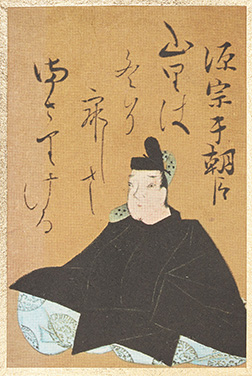 源宗于朝臣
山里は
冬そ
寂しさ
まさりける